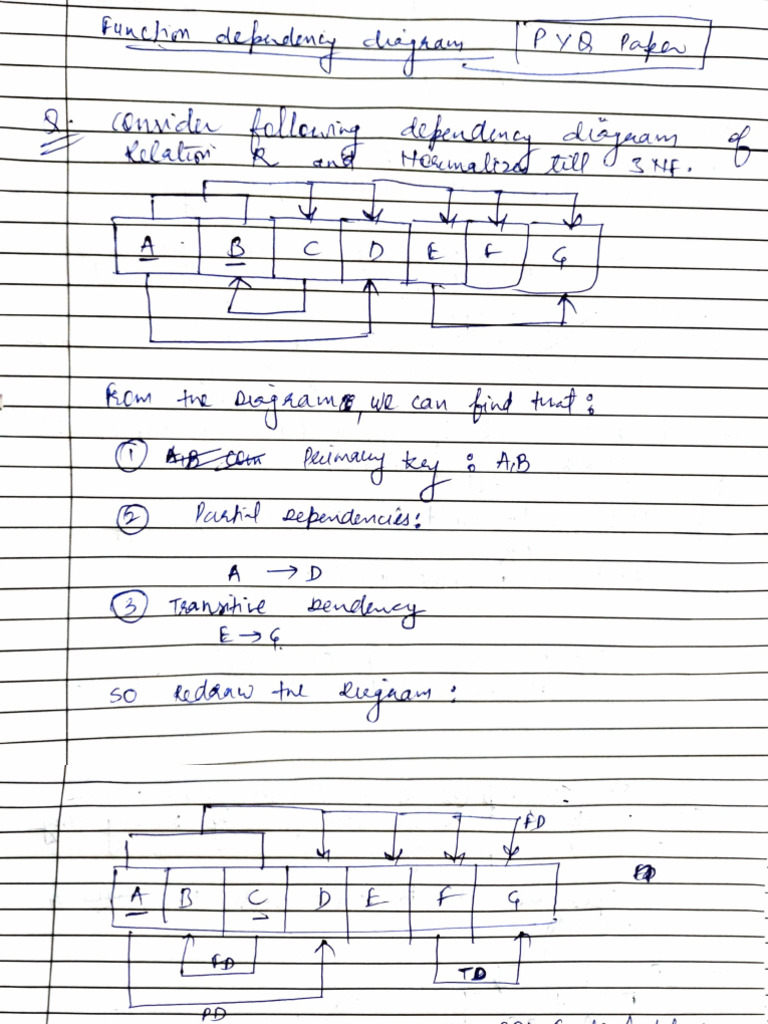 Function dependency diagram PYQ Paper
Q. Consider following dependency diagram of
Relation R and Normalized till 3NF.
A B C D E F G
From the Diagram, we can find that:
① Primary key : A,B
② Partial Dependencies:
A → D
③ Transitive Dendency
E → G
So redraw the Diegram :
FD
A B C D E F G
FD TD
PD